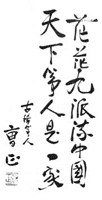 茫茫九派流中國
天下筝人是一家
古稀筝人
曹正